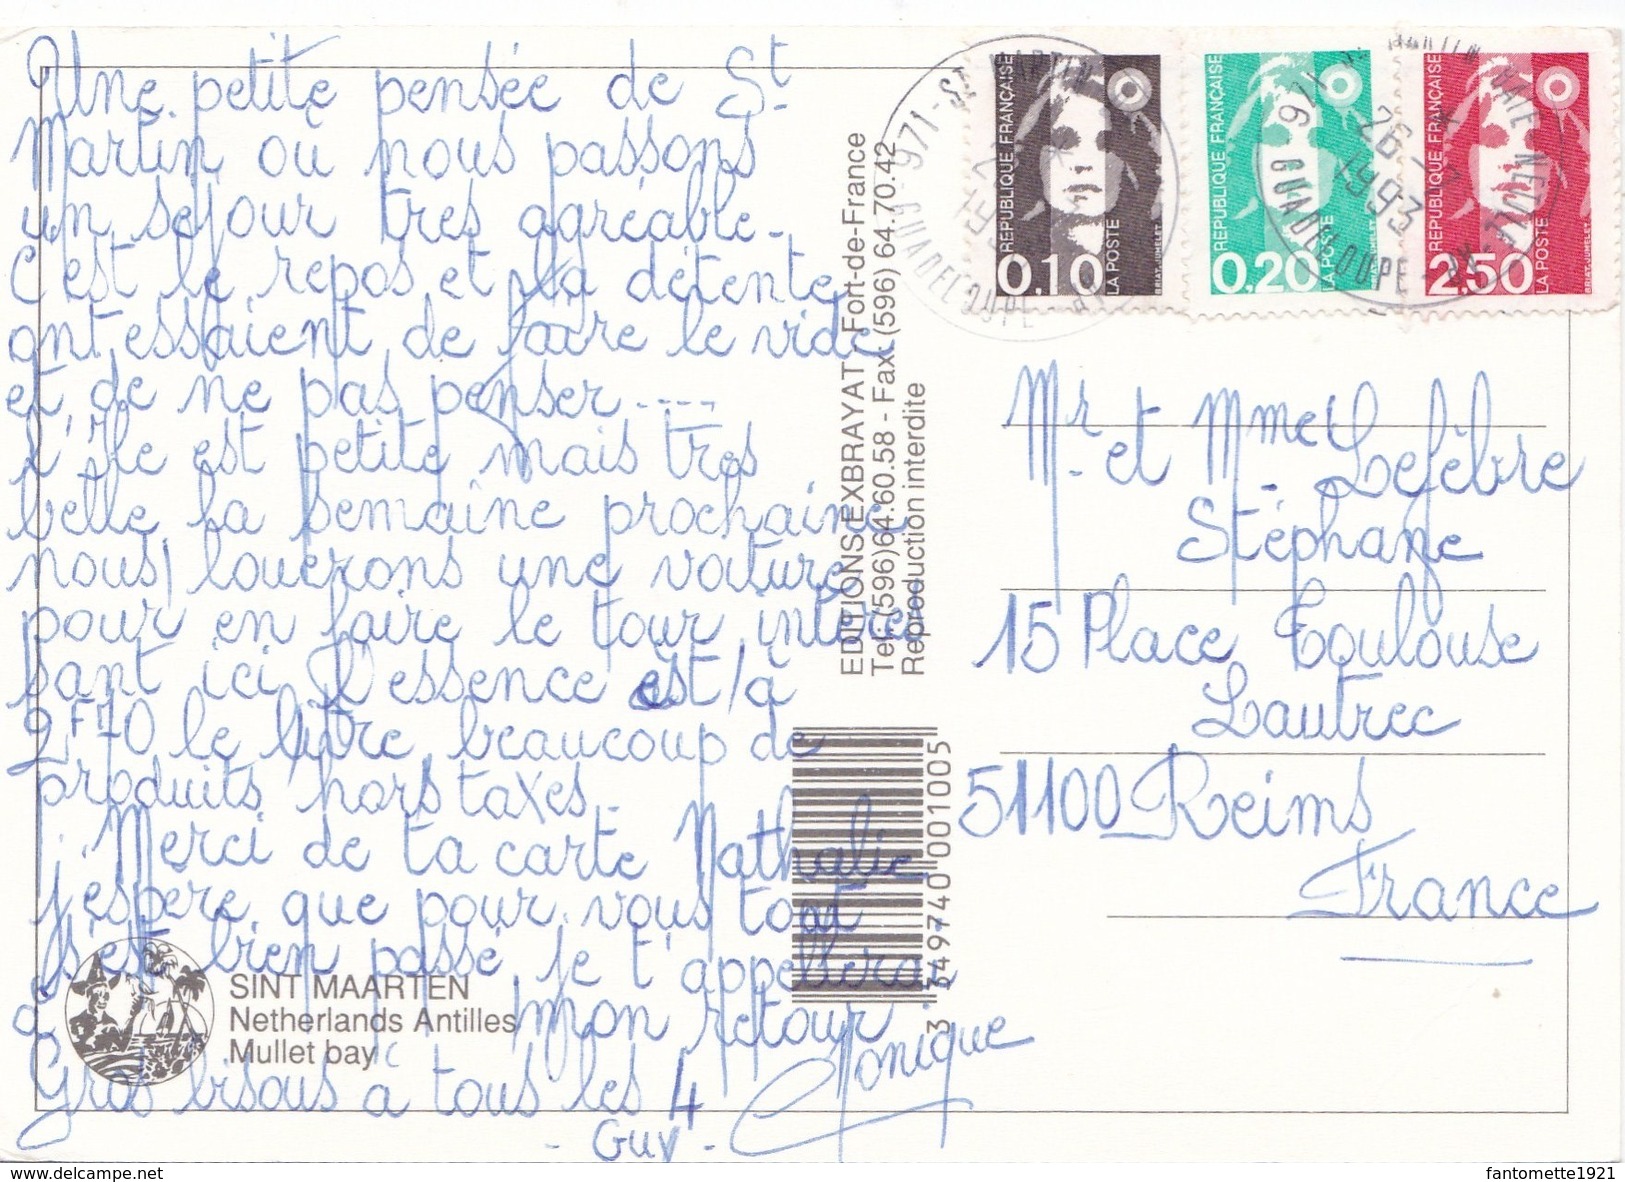 Une petite pensée de St
Martin où nous passons
un séjour très agréable.
C'est le repos et la détente
ont essaient de faire le vide
et de ne pas penser ----
L'île est petite mais très
belle la semaine prochaine
nous louerons une voiture
pour en faire le tour intéres
sant ici l'essence est à
2F70 le litre beaucoup de
produits hors taxes.
Merci de ta carte Nathalie
j'espère que pour vous tout
s'est bien passé je t'appellerai
à mon retour.
Gros bisous à tous les 4
Monique
- Guy -
SINT MAARTEN
Netherlands Antilles
Mullet bay
EDITIONS EXBRAYAT / Fort-de-France
Tel. (596) 64.60.58 - Fax (596) 64.70.42
Reproduction interdite
3 349740 001005
971 - ST MARTIN
GUADELOUPE
REPUBLIQUE FRANÇAISE
0.10 LA POSTE
BRIAT-JUMELET
REPUBLIQUE FRANÇAISE
0.20 LA POSTE
REPUBLIQUE FRANÇAISE
2.50 LA POSTE
BRIAT-JUMELET
971 MARTIN
26
1993
GUADELOUPE
Mr et Mme Lefèbre
Stéphane
15 Place Toulouse
Lautrec
51100 Reims
France
delcampe.net
fantomette1921